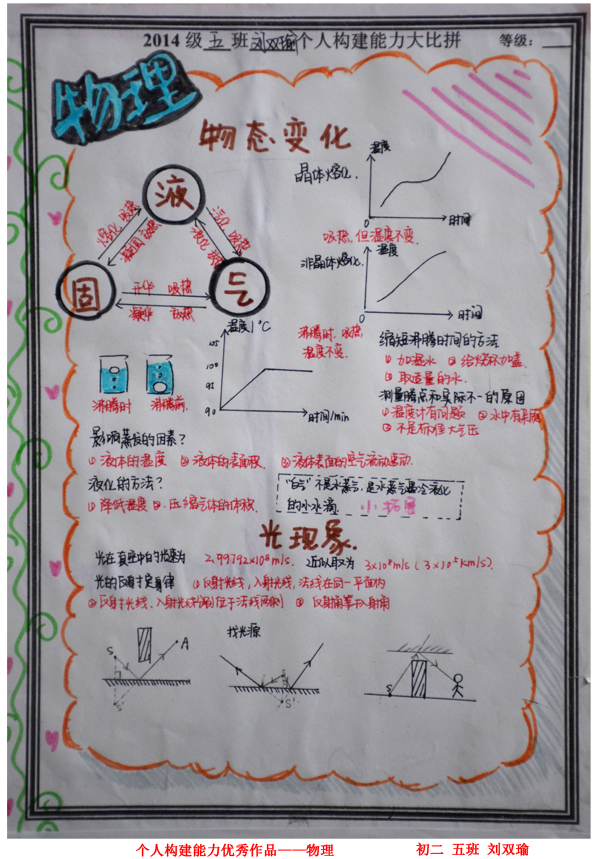 2014级 五 班 刘双瑜 个人构建能力大比拼 等级：
物理
物态变化
液
固
气
熔化 吸热
凝固 放热
汽化 吸热
液化 放热
升华 吸热
凝华 放热
晶体熔化.
温度
0
时间
吸热, 但温度不变.
非晶体熔化.
温度
0
时间
温度/°C
105
100
95
90
时间/min
沸腾时, 吸热,
温度不变.
沸腾时
沸腾前.
缩短沸腾时间的方法
① 加温水 ② 给烧杯加盖.
③ 取适量的水.
测量沸点和实际不一的原因
① 温度计有问题 ② 水中有杂质
③ 不是标准大气压
影响蒸发的因素？
① 液体的温度 ② 液体的表面积. ③ 液体表面的空气流动速动.
液化的方法？
① 降低温度 ②. 压缩气体的体积.
"白气"不是水蒸气, 是水蒸气遇冷液化
的小水滴. 小拓展
光现象.
光在真空中的光速为 2.99792×10⁸m/s. 近似取为 3×10⁸m/s (3×10⁵km/s).
光的反射定律 ① 反射光线, 入射光线, 法线在同一平面内
② 反射光线、入射光线分别位于法线两侧 ③ 反射角等于入射角
找光源
S
A
S'
S
S'
S
个人构建能力优秀作品——物理 初二 五班 刘双瑜